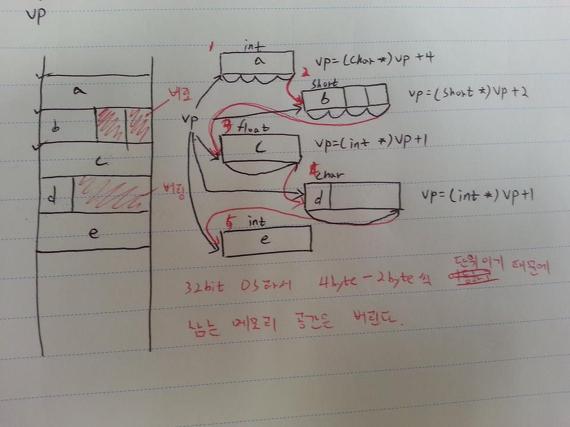 vp
1 int
a
vp=(char *)vp+4
2 short
b
vp=(short *)vp+2
vp
3 float
c
vp=(int *)vp+1
4 char
d
vp=(int *)vp+1
5 int
e
a
b
버림
c
d
버림
e
32bit OS라서 4byte-2byte씩 단위이기 때문에
남는 메모리 공간은 버린다.